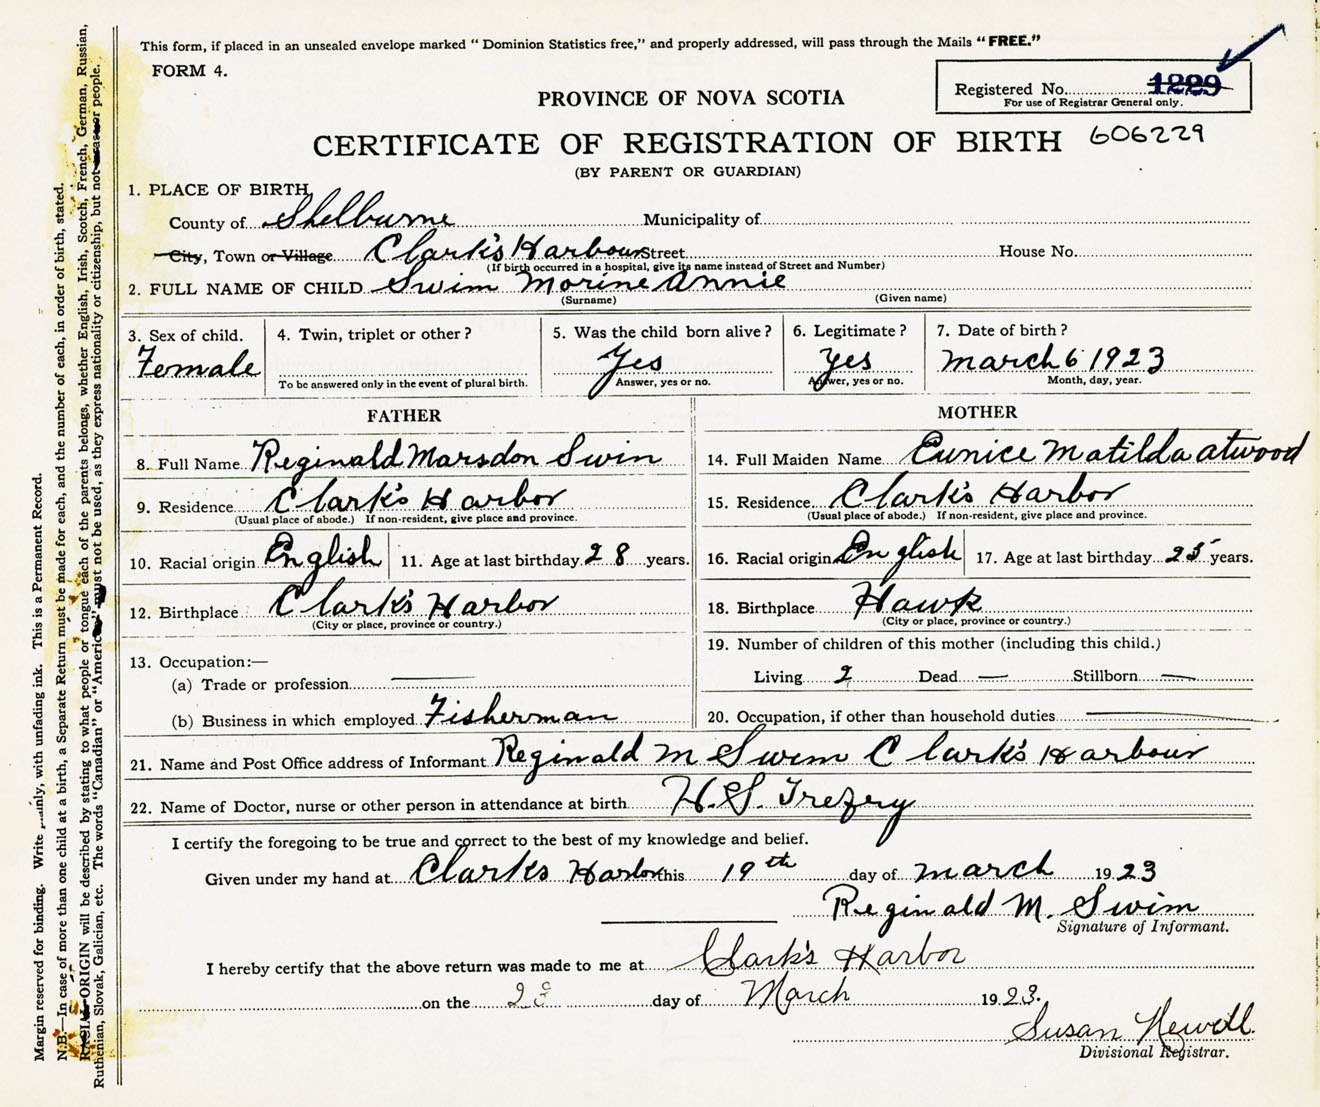 This form, if placed in an unsealed envelope marked " Dominion Statistics free," and properly addressed, will pass through the Mails "FREE."
FORM 4.
Registered No. 1229
For use of Registrar General only.
PROVINCE OF NOVA SCOTIA
CERTIFICATE OF REGISTRATION OF BIRTH 606229
(BY PARENT OR GUARDIAN)
1. PLACE OF BIRTH
County of Shelburne Municipality of
City, Town or Village Clark's Harbour Street House No.
(If birth occurred in a hospital, give its name instead of Street and Number)
2. FULL NAME OF CHILD Swim Morine Annie
(Surname) (Given name)
3. Sex of child. 4. Twin, triplet or other? 5. Was the child born alive? 6. Legitimate? 7. Date of birth?
Female Yes Yes March 6 1923
To be answered only in the event of plural birth. Answer, yes or no. Answer, yes or no. Month, day, year.
FATHER MOTHER
8. Full Name Reginald Marsdon Swim 14. Full Maiden Name Eunice Matilda Atwood
9. Residence Clark's Harbor 15. Residence Clark's Harbor
(Usual place of abode.) If non-resident, give place and province. (Usual place of abode.) If non-resident, give place and province.
10. Racial origin English 11. Age at last birthday 28 years. 16. Racial origin English 17. Age at last birthday 25 years.
12. Birthplace Clark's Harbor 18. Birthplace Hawk
(City or place, province or country.) (City or place, province or country.)
13. Occupation:— 19. Number of children of this mother (including this child.)
(a) Trade or profession — Living 2 Dead — Stillborn —
(b) Business in which employed Fisherman 20. Occupation, if other than household duties —
21. Name and Post Office address of Informant Reginald M Swim Clark's Harbour
22. Name of Doctor, nurse or other person in attendance at birth H. S. Trefry
I certify the foregoing to be true and correct to the best of my knowledge and belief.
Given under my hand at Clarks Harbor this 19th day of March 1923
Reginald M. Swim
Signature of Informant.
I hereby certify that the above return was made to me at Clark's Harbor
on the day of March 1923.
Susan Newell
Divisional Registrar.
Margin reserved for binding. Write plainly, with unfading ink. This is a Permanent Record.
N.B.—In case of more than one child at a birth, a Separate Return must be made for each, and the number of each, in order of birth, stated.
RACIAL ORIGIN will be described by stating to what people or tongue each of the parents belongs, whether English, Irish, Scotch, French, German, Russian,
Ruthenian, Slovak, Galician, etc. The words "Canadian" or "American" must not be used, as they express nationality or citizenship, but not race or people.